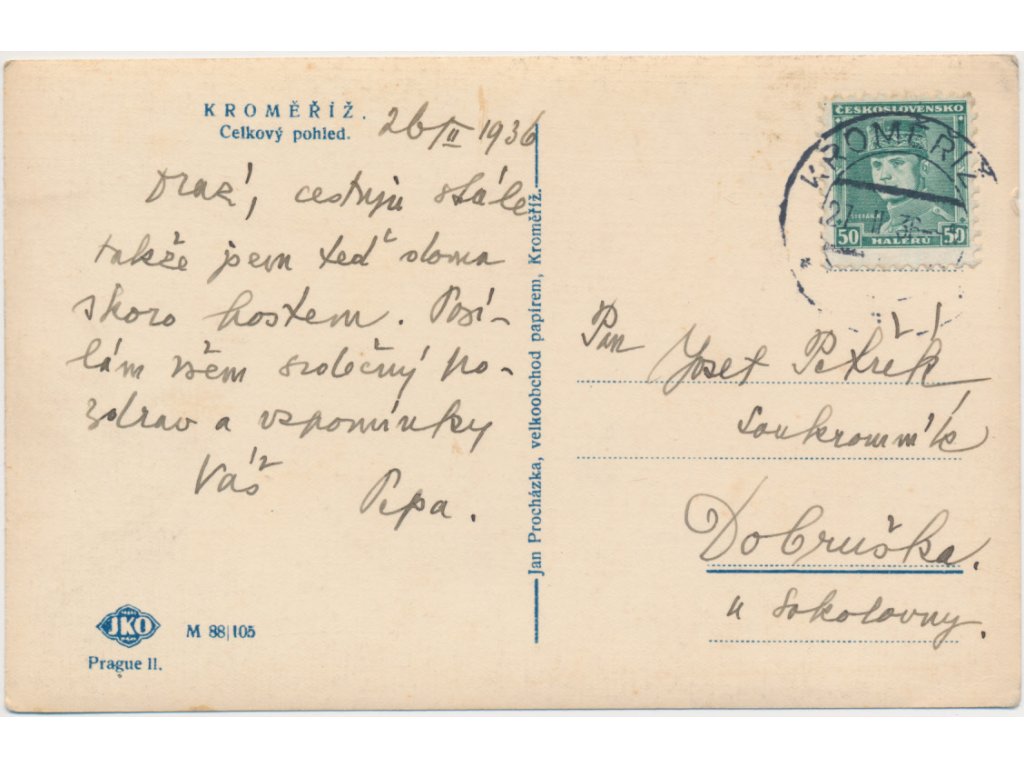 KROMĚŘÍŽ.
Celkový pohled.
26/II 1936
Drazí, cestuju stále
takže jsem teď doma
skoro hostem. Posí-
lám všem srdečný po-
zdrav a vzpomínky
Váš
Pepa.
JKO
Prague II.
M 88|105
Jan Procházka, velkoobchod papírem, Kroměříž.
ČESKOSLOVENSKO
ŠTEFÁNIK
50 HALÉŘŮ 50
KROMĚŘÍŽ
II 36
Pan
Josef Petřík
Soukromník
Dobruška.
u Sokolovny.